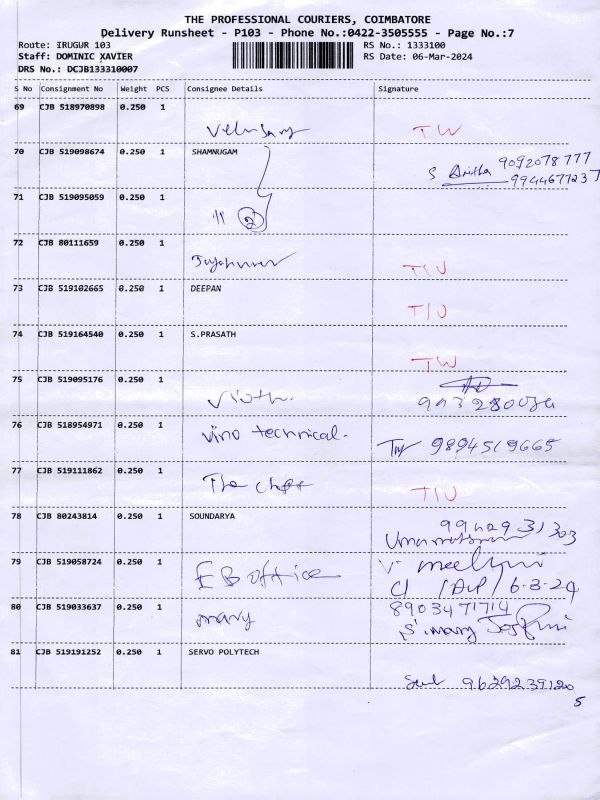 THE PROFESSIONAL COURIERS, COIMBATORE
Delivery Runsheet - P103 - Phone No.:0422-3505555 - Page No.:7
Route: IRUGUR 103 RS No.: 1333100
Staff: DOMINIC XAVIER RS Date: 06-Mar-2024
DRS No.: DCJB133310007
S No Consignment No Weight PCS Consignee Details Signature
69 CJB 518970898 0.250 1
TW
70 CJB 519098674 0.250 1 SHAMNUGAM
9092078777
S
9944677237
71 CJB 519095059 0.250 1
11 2
72 CJB 80111659 0.250 1
T/W
73 CJB 519102665 0.250 1 DEEPAN
T/W
74 CJB 519164540 0.250 1 S.PRASATH
TW
75 CJB 519095176 0.250 1
76 CJB 518954971 0.250 1
vino technical. 9894519665
77 CJB 519111862 0.250 1
The T/W
78 CJB 80243814 0.250 1 SOUNDARYA
9942931303
79 CJB 519058724 0.250 1
EB office
6-3-24
80 CJB 519033637 0.250 1
8903471714
mary S. mary
81 CJB 519191252 0.250 1 SERVO POLYTECH
9629239120
5